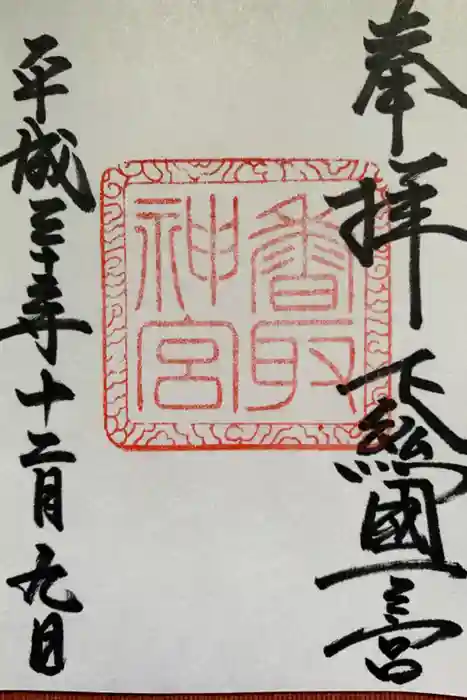 奉拝 下総國一宮
香取
神宮
平成三十年十二月九日